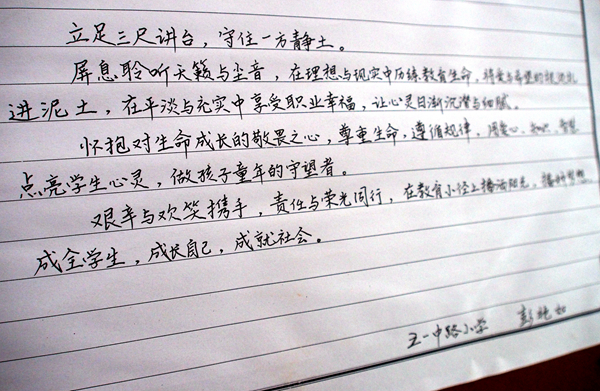 立足三尺讲台，守住一方静土。
屏息聆听天籁与尘音，在理想与现实中历练教育生命，将爱与希望的
进泥土，在平淡与充实中享受职业幸福，让心灵日渐沉潜与细腻。
怀抱对生命成长的敬畏之心，尊重生命，遵循规律，用爱心、
点亮学生心灵，做孩子童年的守望者。
艰辛与欢笑携手，责任与荣光同行，在教育小径上播洒阳光，播种梦想，
成全学生，成长自己，成就社会。
五一中路小学 彭